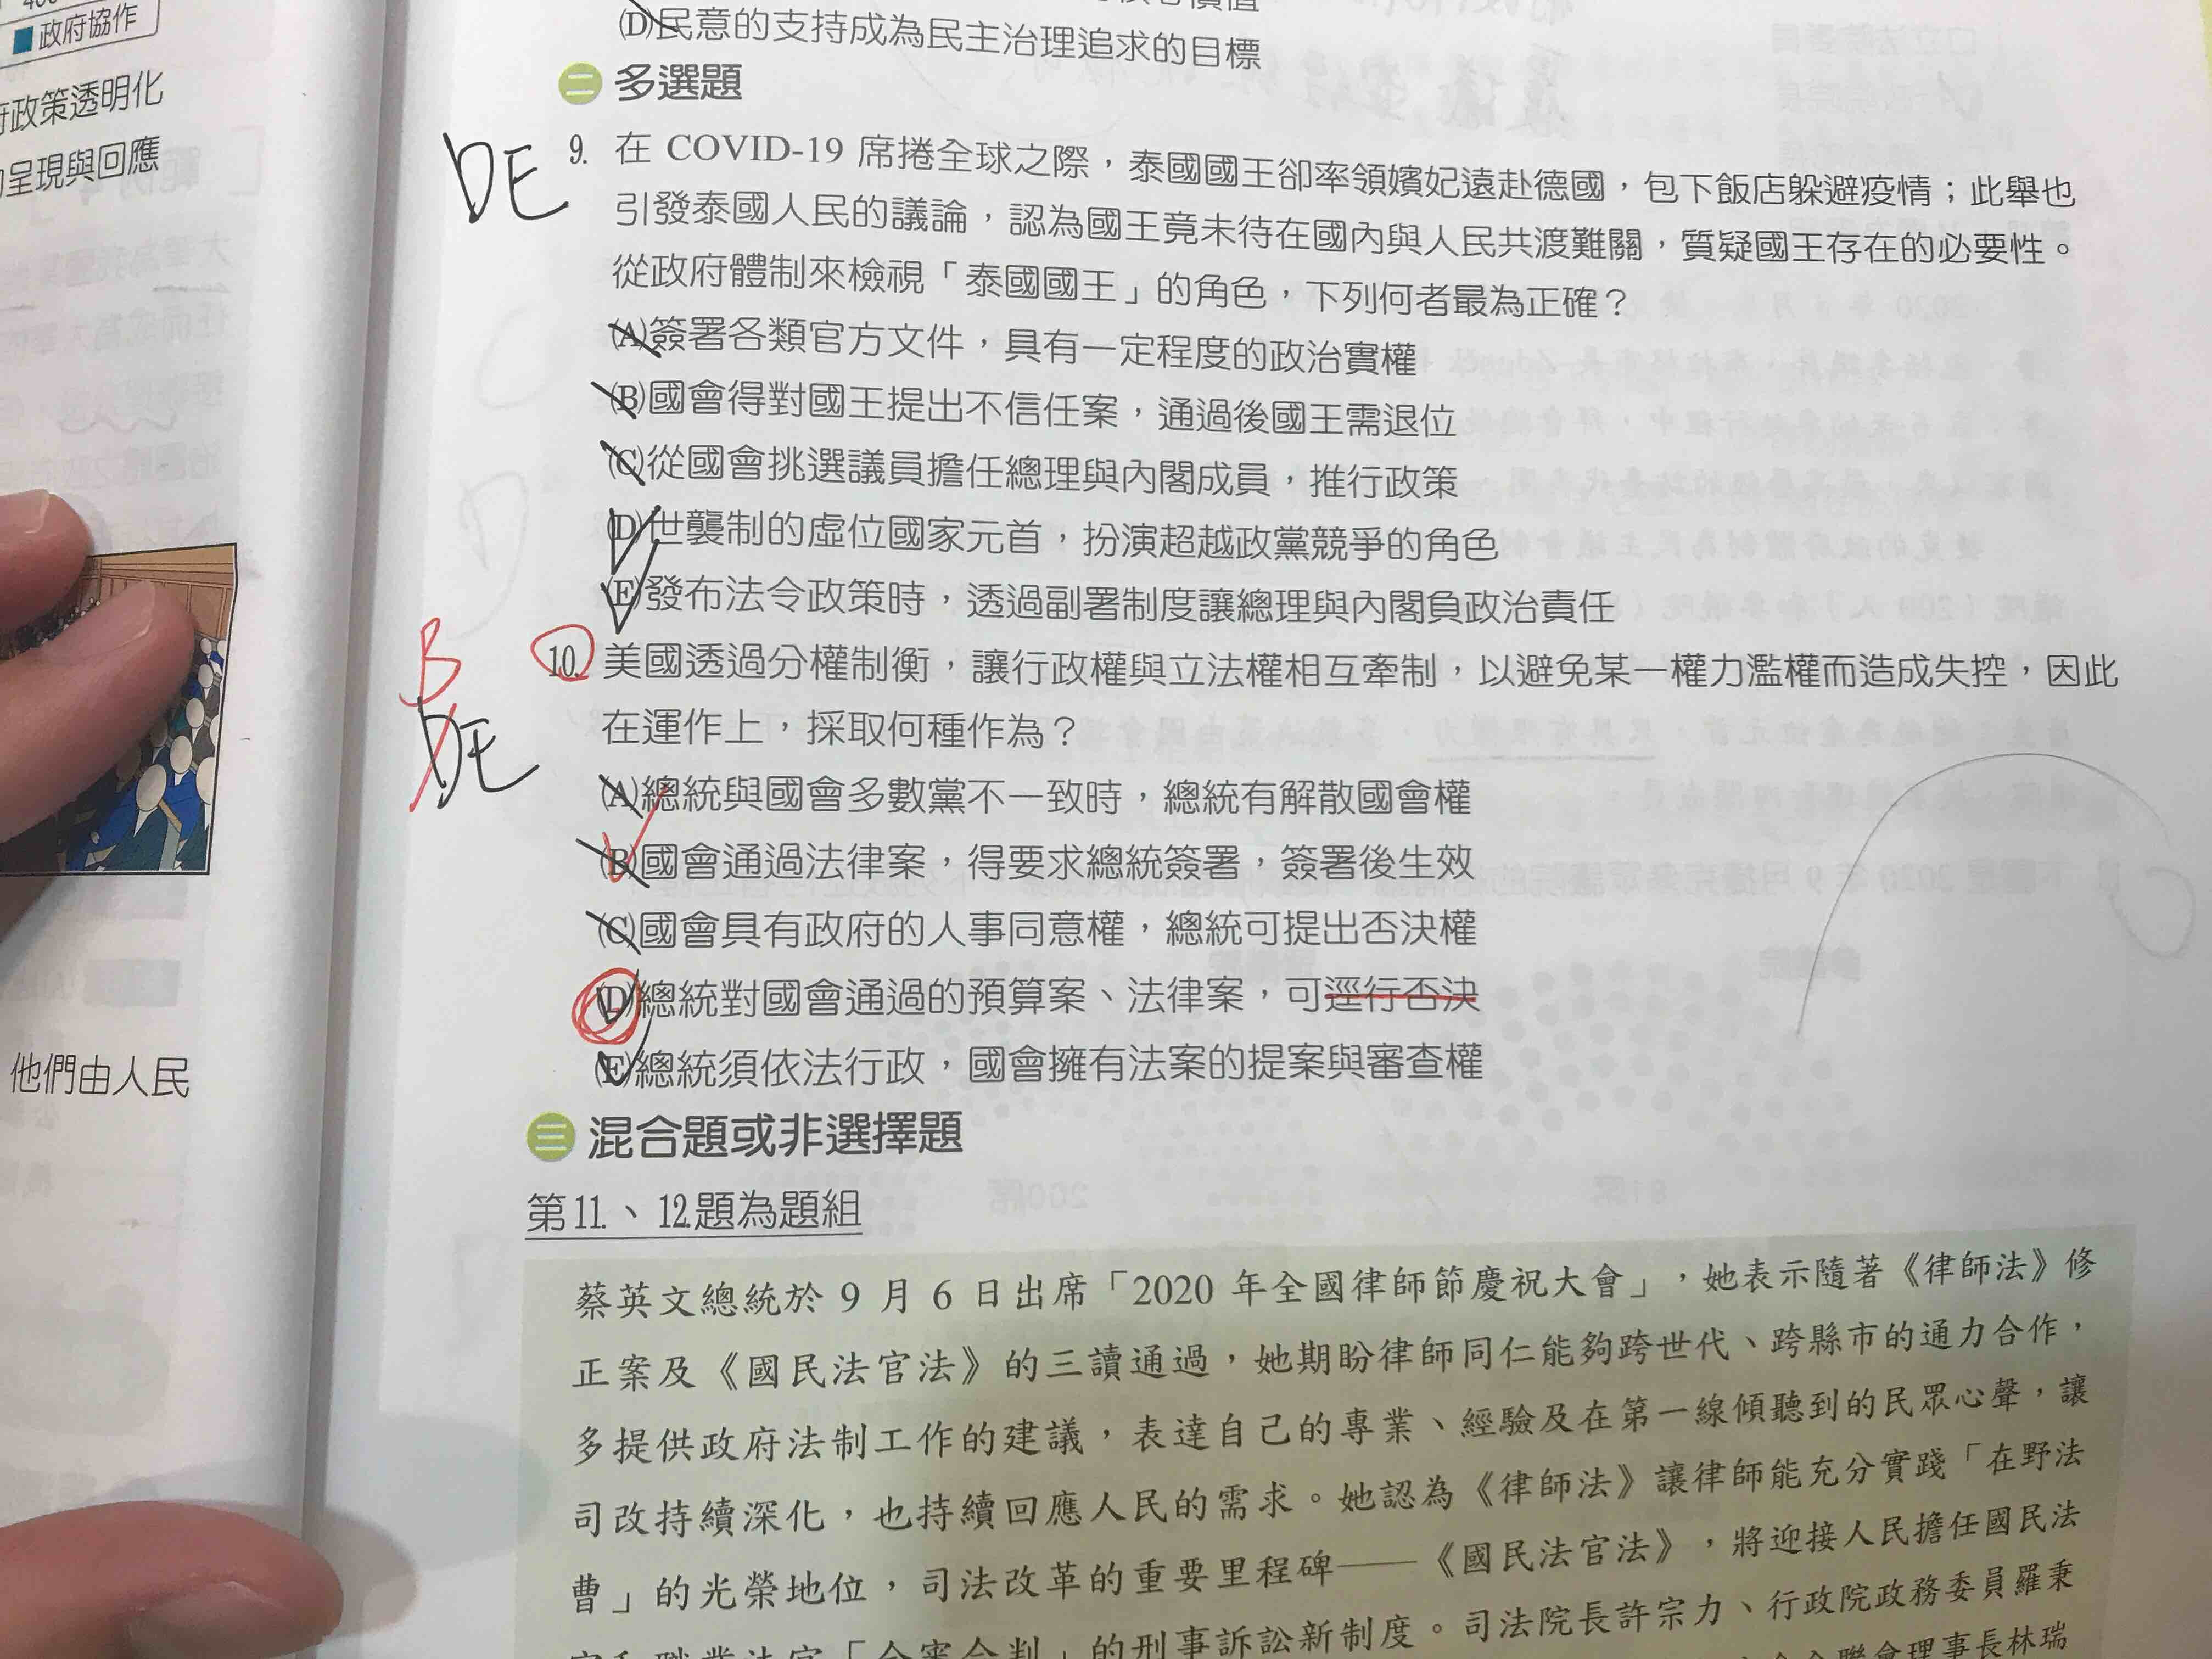 ■政府協作
府政策透明化
呈現與回應
他們由人民
(D)民意的支持成為民主治理追求的目標
二 多選題
DE
9. 在 COVID-19 席捲全球之際，泰國國王卻率領嬪妃遠赴德國，包下飯店躲避疫情；此舉也
引發泰國人民的議論，認為國王竟未待在國內與人民共渡難關，質疑國王存在的必要性。
從政府體制來檢視「泰國國王」的角色，下列何者最為正確？
(A)簽署各類官方文件，具有一定程度的政治實權
(B)國會得對國王提出不信任案，通過後國王需退位
(C)從國會挑選議員擔任總理與內閣成員，推行政策
(D)世襲制的虛位國家元首，扮演超越政黨競爭的角色
(E)發布法令政策時，透過副署制度讓總理與內閣負政治責任
B
DE
10. 美國透過分權制衡，讓行政權與立法權相互牽制，以避免某一權力濫權而造成失控，因此
在運作上，採取何種作為？
(A)總統與國會多數黨不一致時，總統有解散國會權
(B)國會通過法律案，得要求總統簽署，簽署後生效
(C)國會具有政府的人事同意權，總統可提出否決權
(D)總統對國會通過的預算案、法律案，可逕行否決
(E)總統須依法行政，國會擁有法案的提案與審查權
三 混合題或非選擇題
第11.、12.題為題組
蔡英文總統於 9 月 6 日出席「2020 年全國律師節慶祝大會」，她表示隨著《律師法》修
正案及《國民法官法》的三讀通過，她期盼律師同仁能夠跨世代、跨縣市的通力合作，
多提供政府法制工作的建議，表達自己的專業、經驗及在第一線傾聽到的民眾心聲，讓
司改持續深化，也持續回應人民的需求。她認為《律師法》讓律師能充分實踐「在野法
曹」的光榮地位，司法改革的重要里程碑——《國民法官法》，將迎接人民擔任國民法
官和職業法官「合審合判」的刑事訴訟新制度。司法院長許宗力、行政院政務委員羅秉
聯會理事長林瑞